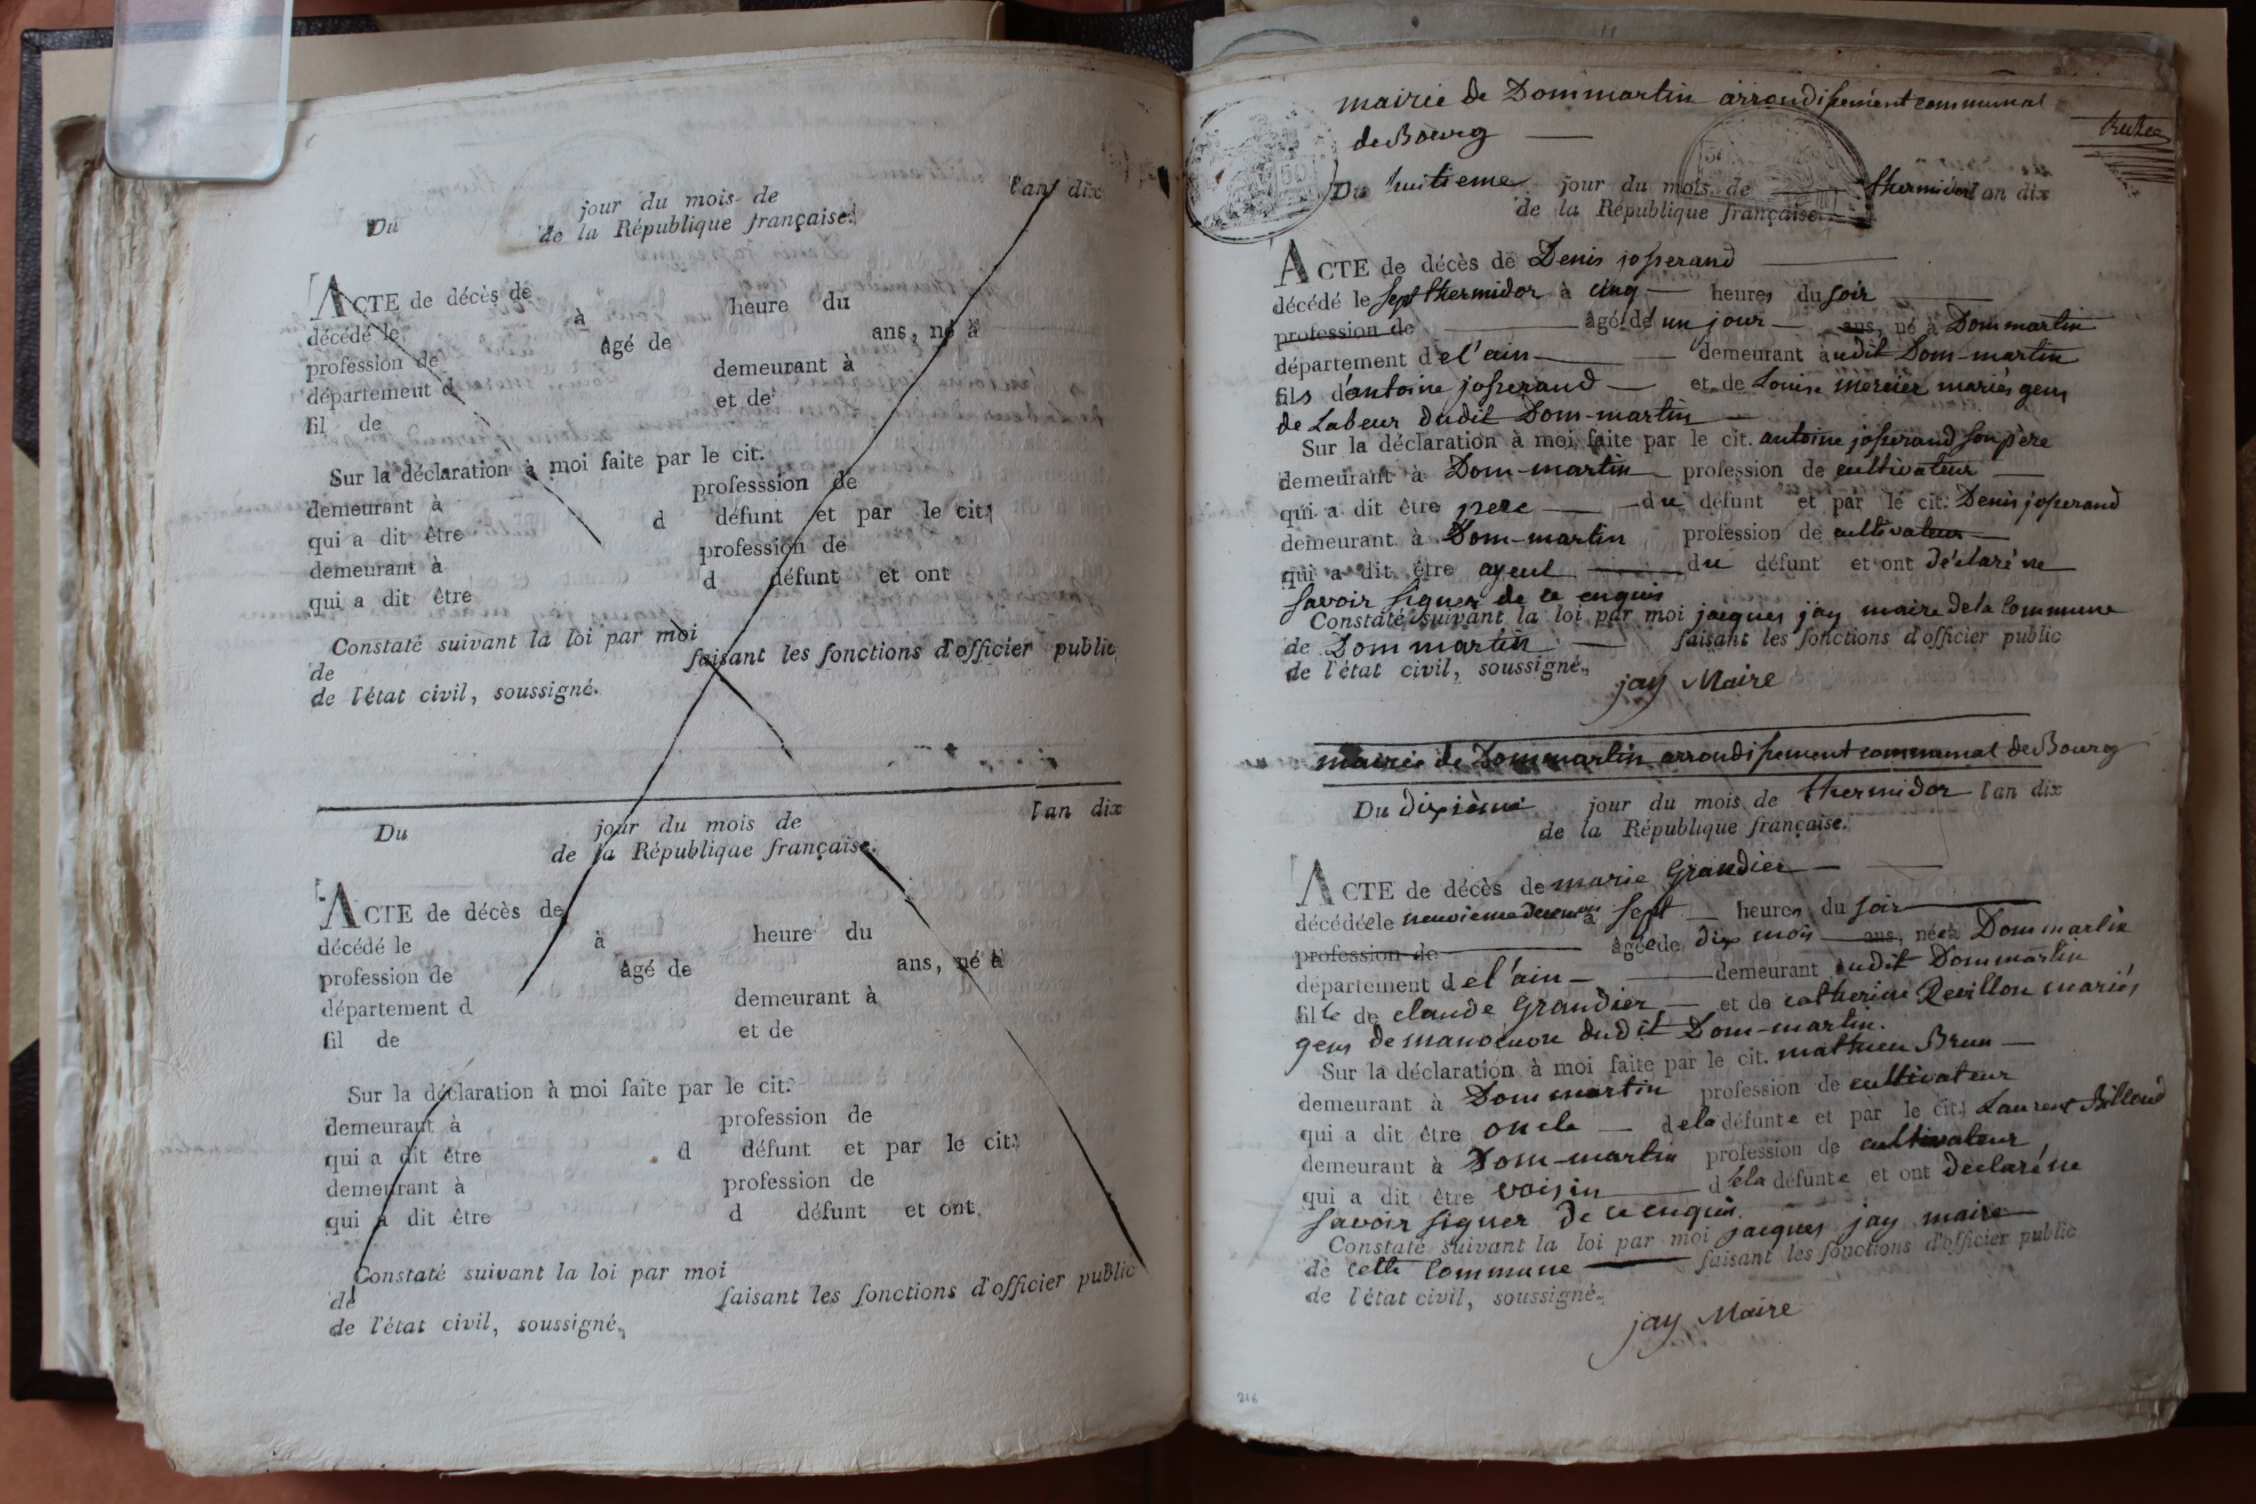 l'an dix
Du jour du mois de
de la République française.
ACTE de décès de
décédé le à heure du
profession de âgé de ans, né à
département d demeurant à
fil de et de
Sur la déclaration à moi faite par le cit.
demeurant à professsion de
qui a dit être d défunt et par le cit.
demeurant à profession de
qui a dit être d défunt et ont
Constaté suivant la loi par moi
de faisant les fonctions d'officier public
de l'état civil, soussigné.
Du jour du mois de l'an dix
de la République française.
ACTE de décès de
décédé le à heure du
profession de âgé de ans, né à
département d demeurant à
fil de et de
Sur la déclaration à moi faite par le cit.
demeurant à profession de
qui a dit être d défunt et par le cit.
demeurant à profession de
qui a dit être d défunt et ont
Constaté suivant la loi par moi
de faisant les fonctions d'officier public
de l'état civil, soussigné.
mairie de Dommartin arrondissement communal
de Bourg
Du huitieme jour du mois de thermidor l'an dix
de la République française.
ACTE de décès de Denis josserand
décédé le sept thermidor à cinq heures du soir
profession de âgé de un jour ans, né à Dommartin
département de l'ain demeurant audit Dom-martin
fils d'antoine josserand et de Louise mercier mariés gens
de Labeur dudit Dom-martin
Sur la déclaration à moi faite par le cit. antoine josserand son père
demeurant à Dom-martin profession de cultivateur
qui a dit être pere du défunt et par le cit. Denis josserand
demeurant à Dom-martin profession de cultivateur
qui a dit être ayeul du défunt et ont déclaré ne
savoir signer de ce enquis
Constaté suivant la loi par moi jacques jay maire de la Commune
de Dommartin faisant les fonctions d'officier public
de l'état civil, soussigné.
jay Maire
mairie de Dommartin arrondissement communal de Bourg
Du dixième jour du mois de thermidor l'an dix
de la République française.
ACTE de décès de marie Grandier
décédée le neuvieme à sept heures du soir
profession de âgée de dix mois ans, née à Dommartin
département de l'ain demeurant audit Dommartin
fille de claude Grandier et de catherine Revillon mariés
gens de manoeuvre dudit Dom-martin.
Sur la déclaration à moi faite par le cit. mathieu Brun
demeurant à Dommartin profession de cultivateur
qui a dit être oncle de la défunte et par le cit. Laurent Billoud
demeurant à Dom-martin profession de cultivateur
qui a dit être voisin de la défunte et ont déclaré ne
savoir signer de ce enquis.
Constaté suivant la loi par moi jacques jay maire
de cette Commune faisant les fonctions d'officier public
de l'état civil, soussigné.
jay Maire
216